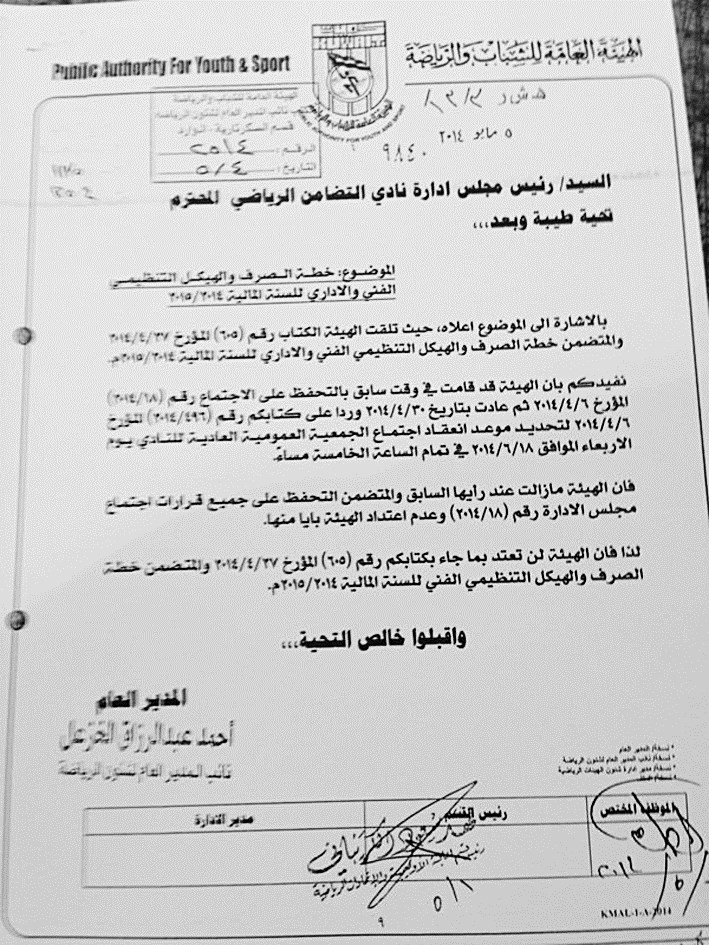 Public Authority For Youth & Sport
الهيئة العامة للشباب والرياضة
PUBLIC AUTHORITY FOR YOUTH AND SPORT
الهيئة العامة للشباب والرياضة
نائب المدير العام لشئون الرياضة
قسم السكرتارية - الوارد
الرقم: ٢٥١٤
التاريخ: ٥/٤
٥ مايو ٢٠١٤
٩٨٤٠
السيد/ رئيس مجلس ادارة نادي التضامن الرياضي المحترم
تحية طيبة وبعد،،،
الموضوع: خطة الصرف والهيكل التنظيمي
الفني والاداري للسنة المالية ٢٠١٥/٢٠١٤
بالاشارة الى الموضوع اعلاه، حيث تلقت الهيئة الكتاب رقم (٦٠٥) المؤرخ ٢٠١٤/٤/٢٧
والمتضمن خطة الصرف والهيكل التنظيمي الفني والاداري للسنة المالية ٢٠١٥/٢٠١٤م.
نفيدكم بان الهيئة قد قامت في وقت سابق بالتحفظ على الاجتماع رقم (٢٠١٤/١٨)
المؤرخ ٢٠١٤/٤/٦ ثم عادت بتاريخ ٢٠١٤/٤/٣٠ وردا على كتابكم رقم (٢٠١٤/٤٩٦) المؤرخ
٢٠١٤/٤/٦ لتحديد موعد انعقاد اجتماع الجمعية العمومية العادية للنادي يوم
الاربعاء الموافق ٢٠١٤/٦/١٨ في تمام الساعة الخامسة مساءً.
فان الهيئة مازالت عند رايها السابق والمتضمن التحفظ على جميع قرارات اجتماع
مجلس الادارة رقم (٢٠١٤/١٨) وعدم اعتداد الهيئة بايا منها.
لذا فان الهيئة لن تعتد بما جاء بكتابكم رقم (٦٠٥) المؤرخ ٢٠١٤/٤/٢٧ والمتضمن خطة
الصرف والهيكل التنظيمي الفني للسنة المالية ٢٠١٥/٢٠١٤م.
واقبلوا خالص التحية،،،
المدير العام
أحمد عبدالرزاق الخزعل
نائب المدير العام لشئون الرياضة
* نسخة/ المدير العام
* نسخة/ نائب المدير العام لشئون الرياضة
* نسخة/ مدير ادارة شئون الهيئات الرياضية
الموظف المختص
رئيس القسم
مدير الادارة
KMAL-1-A-2014